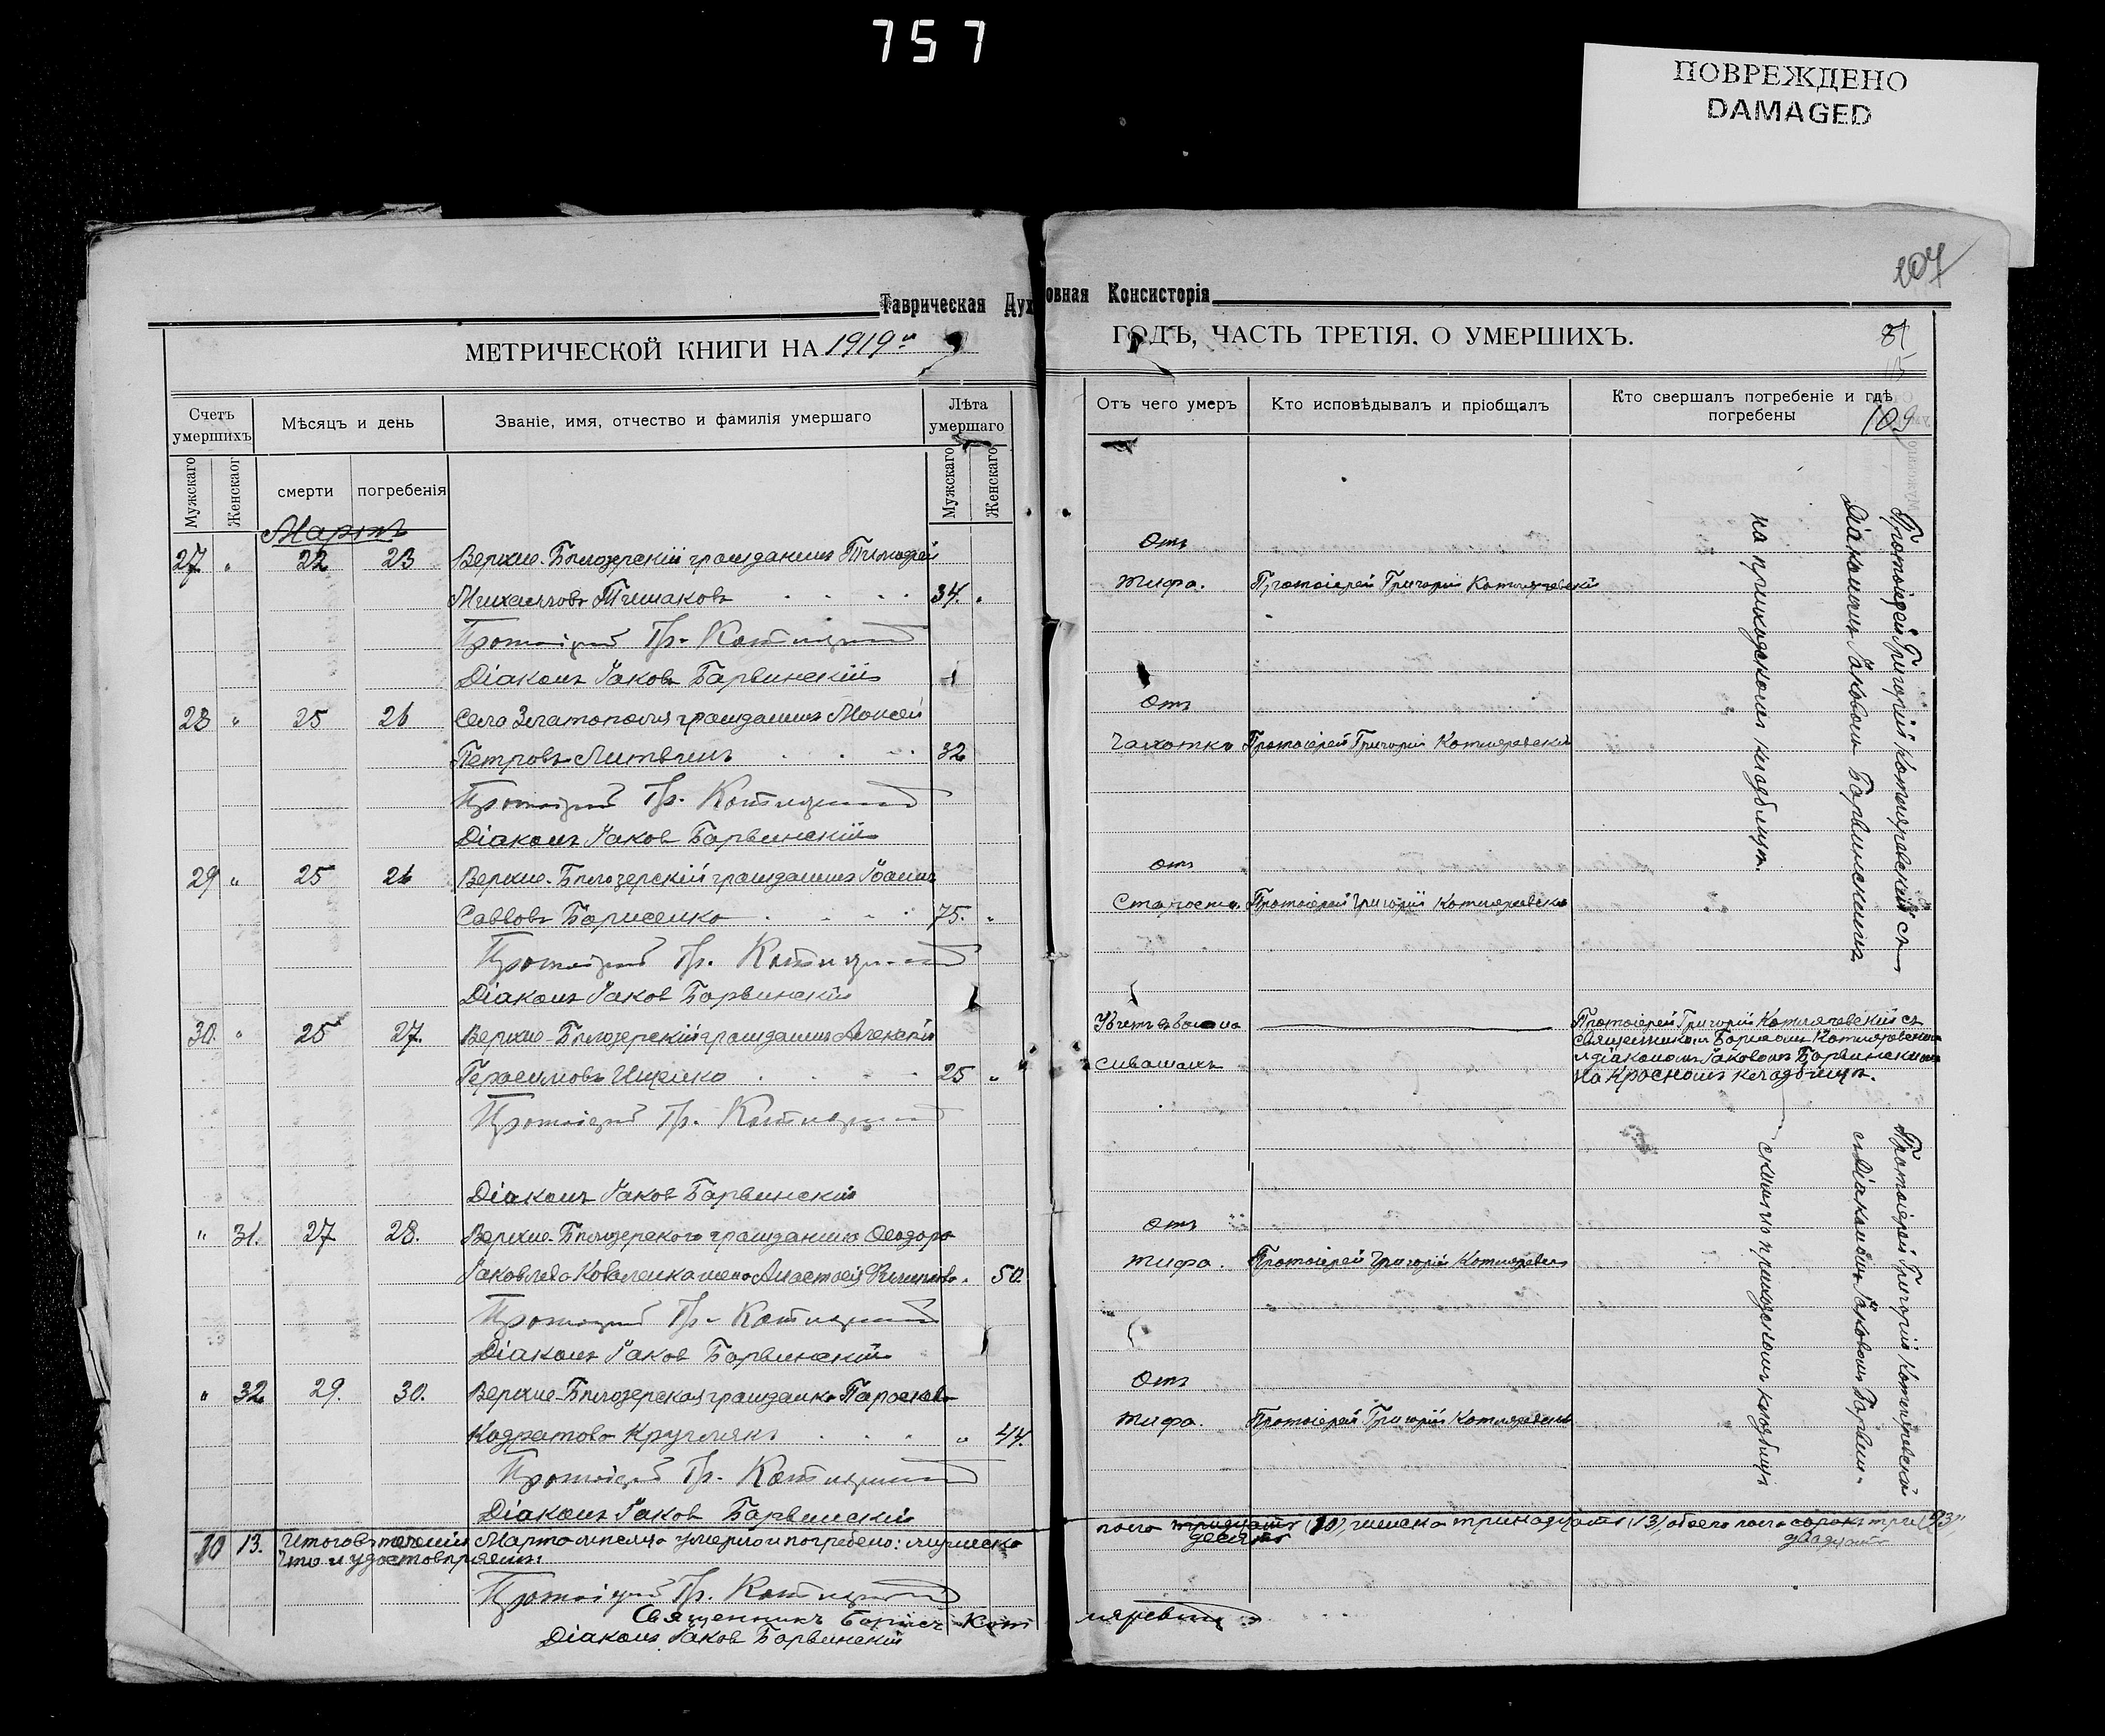 757
ПОВРЕЖДЕНО
DAMAGED
207
Таврическая Духовная Консисторія
МЕТРИЧЕСКОЙ КНИГИ НА 1919й
ГОДЪ, ЧАСТЬ ТРЕТІЯ, О УМЕРШИХЪ.
109
Счетъ умершихъ
Мѣсяцъ и день
Званіе, имя, отчество и фамилія умершаго
Лѣта умершаго
Отъ чего умеръ
Кто исповѣдывалъ и пріобщалъ
Кто свершалъ погребеніе и гдѣ погребены
Мужскаго
Женскаог
смерти
погребенія
Мужскаго
Женскаго
Мартъ
27 " 22 23 Верхне-Бѣлозерскій гражданинъ Тимофей Отъ
Михаиловъ Тимаковъ 34. " тифа. Протоіерей Григорій Котляревскій
Протоіерей Гр. Котляревскій
Діаконъ Іаковъ Барвинскій
28 " 25 26 Села Златополя гражданинъ Моисей Отъ
Петровъ Литвинъ 32 Чахотки Протоіерей Григорій Котляревскій
Протоіерей Гр. Котляревскій
Діаконъ Іаковъ Барвинскій
29 " 25 26 Верхне-Бѣлозерскій гражданинъ Іоаннъ отъ
Саввовъ Борисенко 75. " Старости. Протоіерей Григорій Котляревскій
Протоіерей Гр. Котляревскій
Діаконъ Іаковъ Барвинскій
Протоіерей Григорій Котляревскій съ
Діакономъ Іаковомъ Барвинскимъ
на приходскомъ кладбищѣ.
30. " 25 27. Верхне-Бѣлозерскій гражданинъ Алексѣй Убитъ
Герасимовъ Ищенко 25 " Сивашомъ
Протоіерей Григорій Котляревскій съ
священникомъ Борисомъ Котляревскимъ
и діакономъ Іаковомъ Барвинскимъ
на Красномъ кладбищѣ.
Протоіерей Гр. Котляревскій
Діаконъ Іаковъ Барвинскій
" 31. 27 28. Верхне-Бѣлозерского гражданина Ѳеодора Отъ
Іаковлева Коваленка жена Анастасія Филиппова. 50. тифа. Протоіерей Григорій Котляревскій
Протоіерей Гр. Котляревскій
Діаконъ Іаковъ Барвинскій
" 32 29. 30. Верхне-Бѣлозерская гражданка Параскева Отъ
Кодратова Круглякъ " 44. тифа. Протоіерей Григорій Котляревскій
Протоіерей Гр. Котляревскій
Діаконъ Іаковъ Барвинскій
Протоіерей Григорій Котляревскій
съ Діакономъ Іаковомъ Барвин-
скимъ на приходскомъ кладбищѣ
10 13. Итого въ теченіи Марта мѣсяца умерло и погребено: мужеска пола тридцать (10), женска тринадцать (13), обоего пола сорокъ три
десять
двадцать
Что и удостовѣряемъ:
Протоіерей Гр. Котляревскій
Священникъ Борисъ Котляревскій
Діаконъ Іаковъ Барвинскій